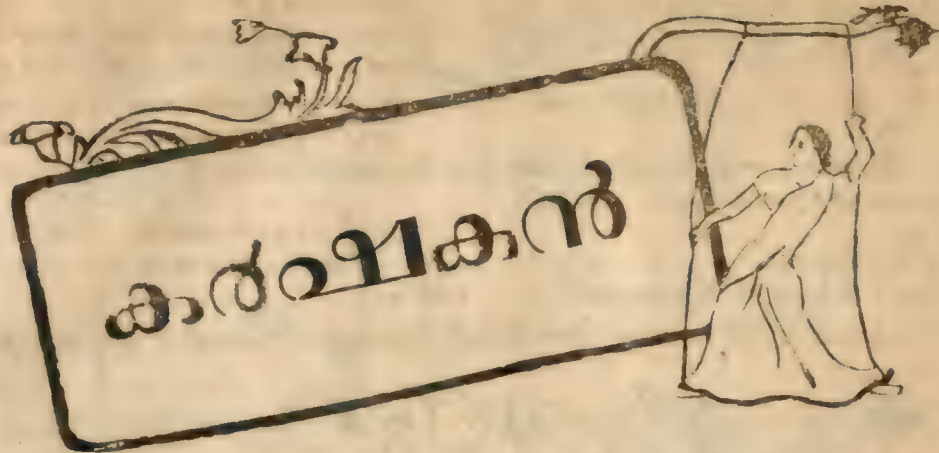 കർഷകൻ